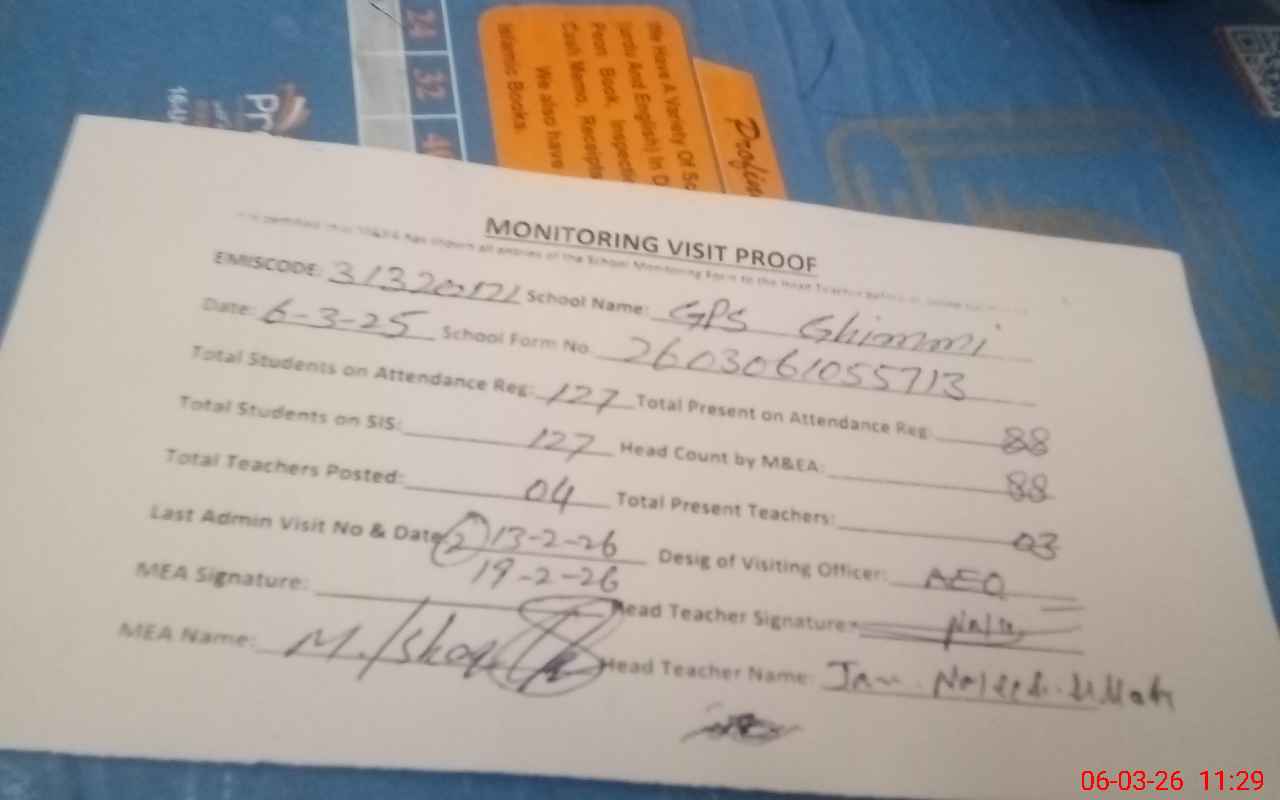 24
32
We Have A Variety Of
Urdu And English) In
Peon Book, Inspecti
Cash Memo, Receipts
We also have
Islamic Books.
MONITORING VISIT PROOF
has shown all entries of the School Monitoring Form to the Head Teacher before
EMISCODE: 31320171 School Name: GPS Ghimmi
Date: 6-3-25 School Form No. 2603061055713
Total Students on Attendance Reg: 127 Total Present on Attendance Reg: 88
Total Students on SIS: 127 Head Count by M&EA: 88
Total Teachers Posted: 04 Total Present Teachers: 03
Last Admin Visit No & Date (2) 13-2-26 Desig of Visiting Officer: AEO
19-2-26
MEA Signature: Head Teacher Signature
MEA Name: M. Ishaq Head Teacher Name: Jam
06-03-26 11:29